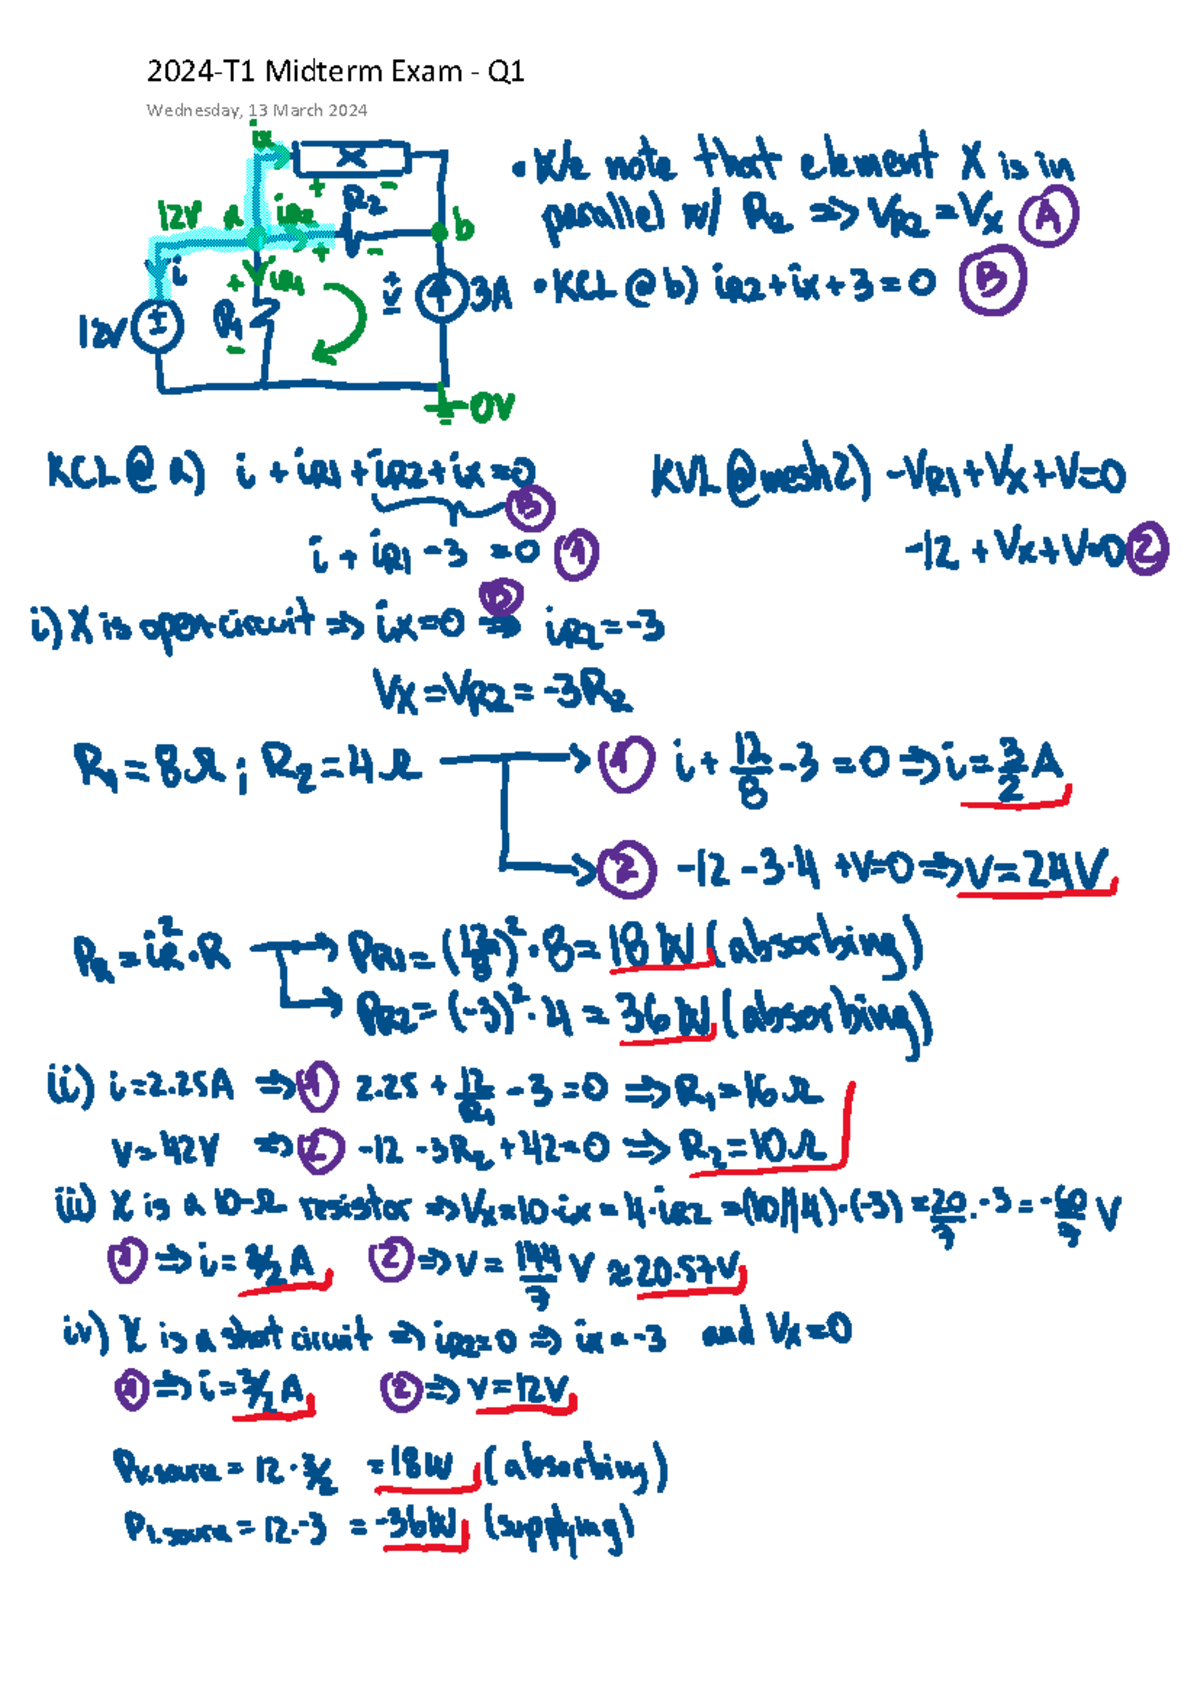 2024-T1 Midterm Exam - Q1
Wednesday, 13 March 2024
ix
X
+ -
R2
12V a iR2
b
+ -
i
+ iR1
+
v
-
3A
12V
R1
-
0V
• We note that element X is in
parallel w/ R2 => VR2 = Vx (A)
• KCL @ b) iR2 + ix + 3 = 0 (B)
KCL @ a) i + iR1 + iR2 + ix = 0
(B)
i + iR1 - 3 = 0 (1)
KVL @ mesh 2) -VR1 + Vx + V = 0
-12 + Vx + V = 0 (2)
i) X is open circuit => ix = 0 => iR2 = -3
Vx = VR2 = -3R2
R1 = 8Ω ; R2 = 4Ω → (1) i + 12/8 - 3 = 0 => i = 3/2 A
→ (2) -12 - 3·4 + V = 0 => V = 24V
PR = iR² · R → PR1 = (12/8)² · 8 = 18 W (absorbing)
→ PR2 = (-3)² · 4 = 36 W (absorbing)
ii) i = 2.25A => (1) 2.25 + 12/R1 - 3 = 0 => R1 = 16Ω
v = 42V => (2) -12 - 3R2 + 42 = 0 => R2 = 10Ω
iii) X is a 10-Ω resistor => Vx = 10·ix = 4·iR2 = (10//4)·(-3) = 20/7 · -3 = -60/7 V
(1) => i = 3/2 A (2) => v = 144/7 V ≈ 20.57V
iv) X is a short circuit => iR2 = 0 => ix = -3 and Vx = 0
(1) => i = 3/2 A (2) => v = 12V
PV.source = 12 · 3/2 = 18W (absorbing)
PI.source = 12·-3 = -36W (supplying)